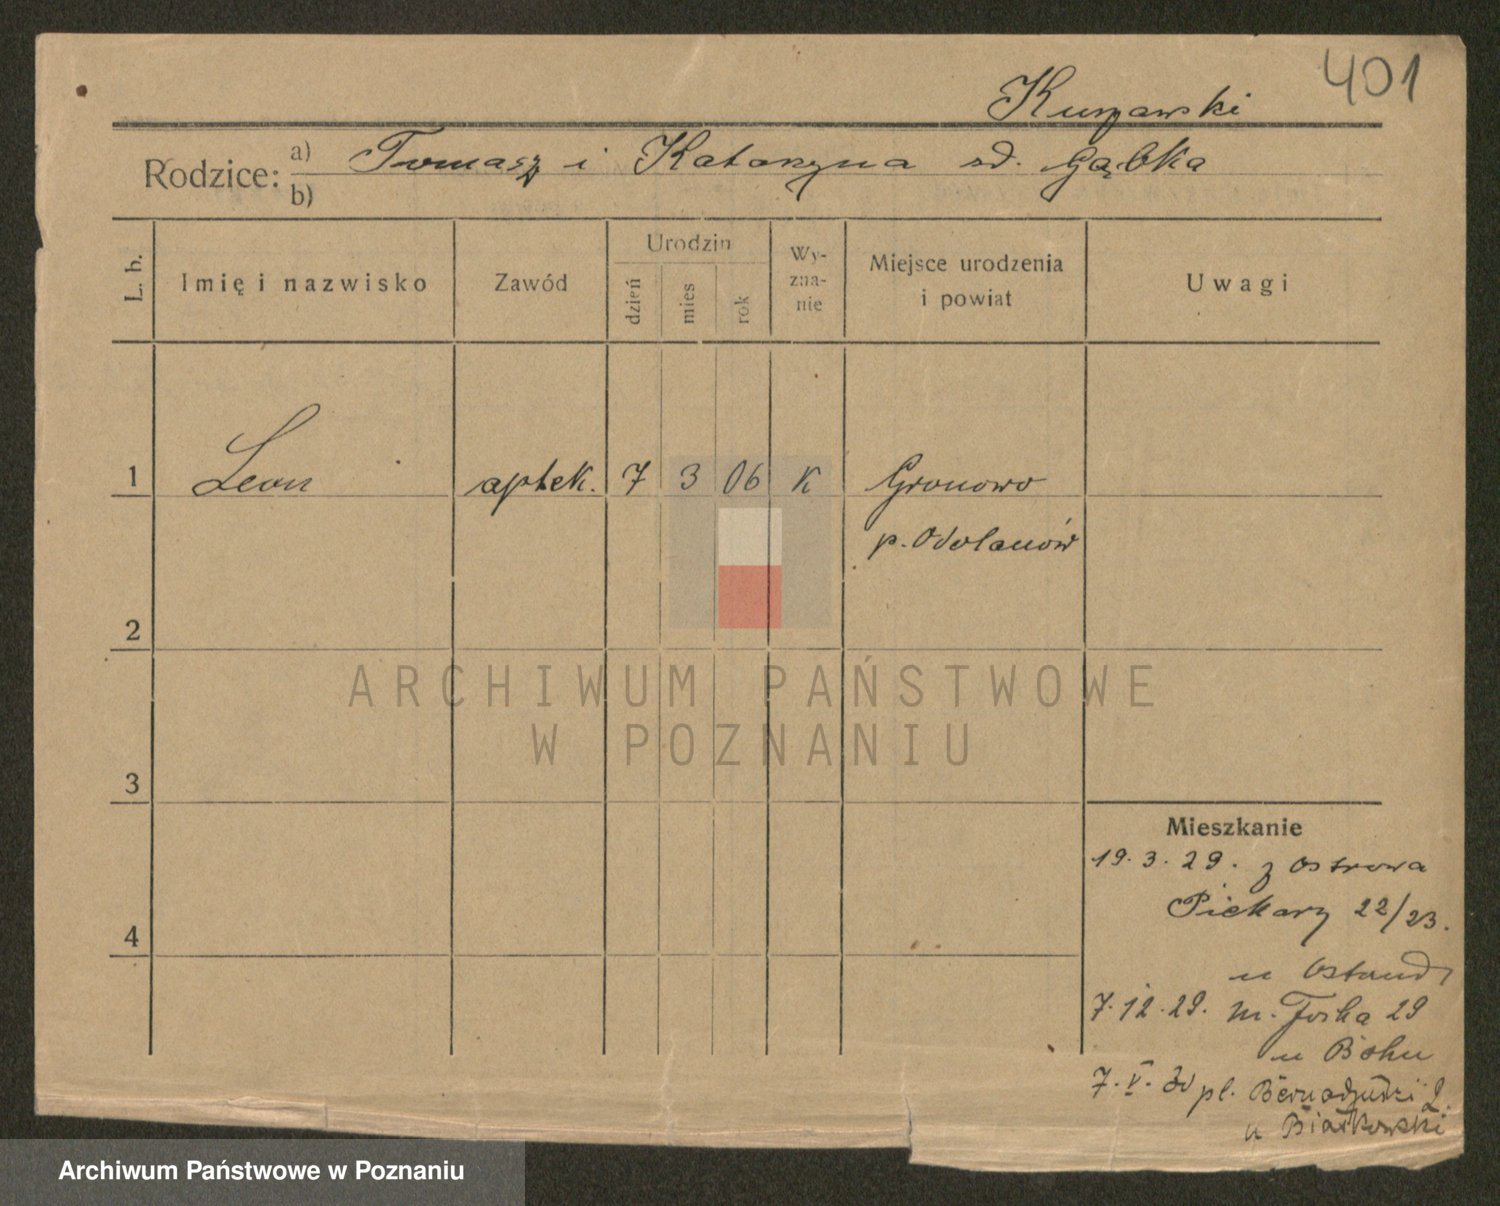 401
Kurzawski
Rodzice: a) Tomasz i Katarzyna zd. Gąbka
b)
L. b. Imię i nazwisko Zawód Urodzin dzień mies rok Wy- zna- nie Miejsce urodzenia i powiat Uwagi
1 Leon aptek. 7 3 06 K Gronowo
p. Odolanów
2
ARCHIWUM PAŃSTWOWE
W POZNANIU
3
Mieszkanie
19.3.29. z Ostrowa
Piekary 22/23.
4
u
7.12.29. m. Focha 29
u
7.V.30 pl. Bernardyński 2.
u Białkowski
Archiwum Państwowe w Poznaniu